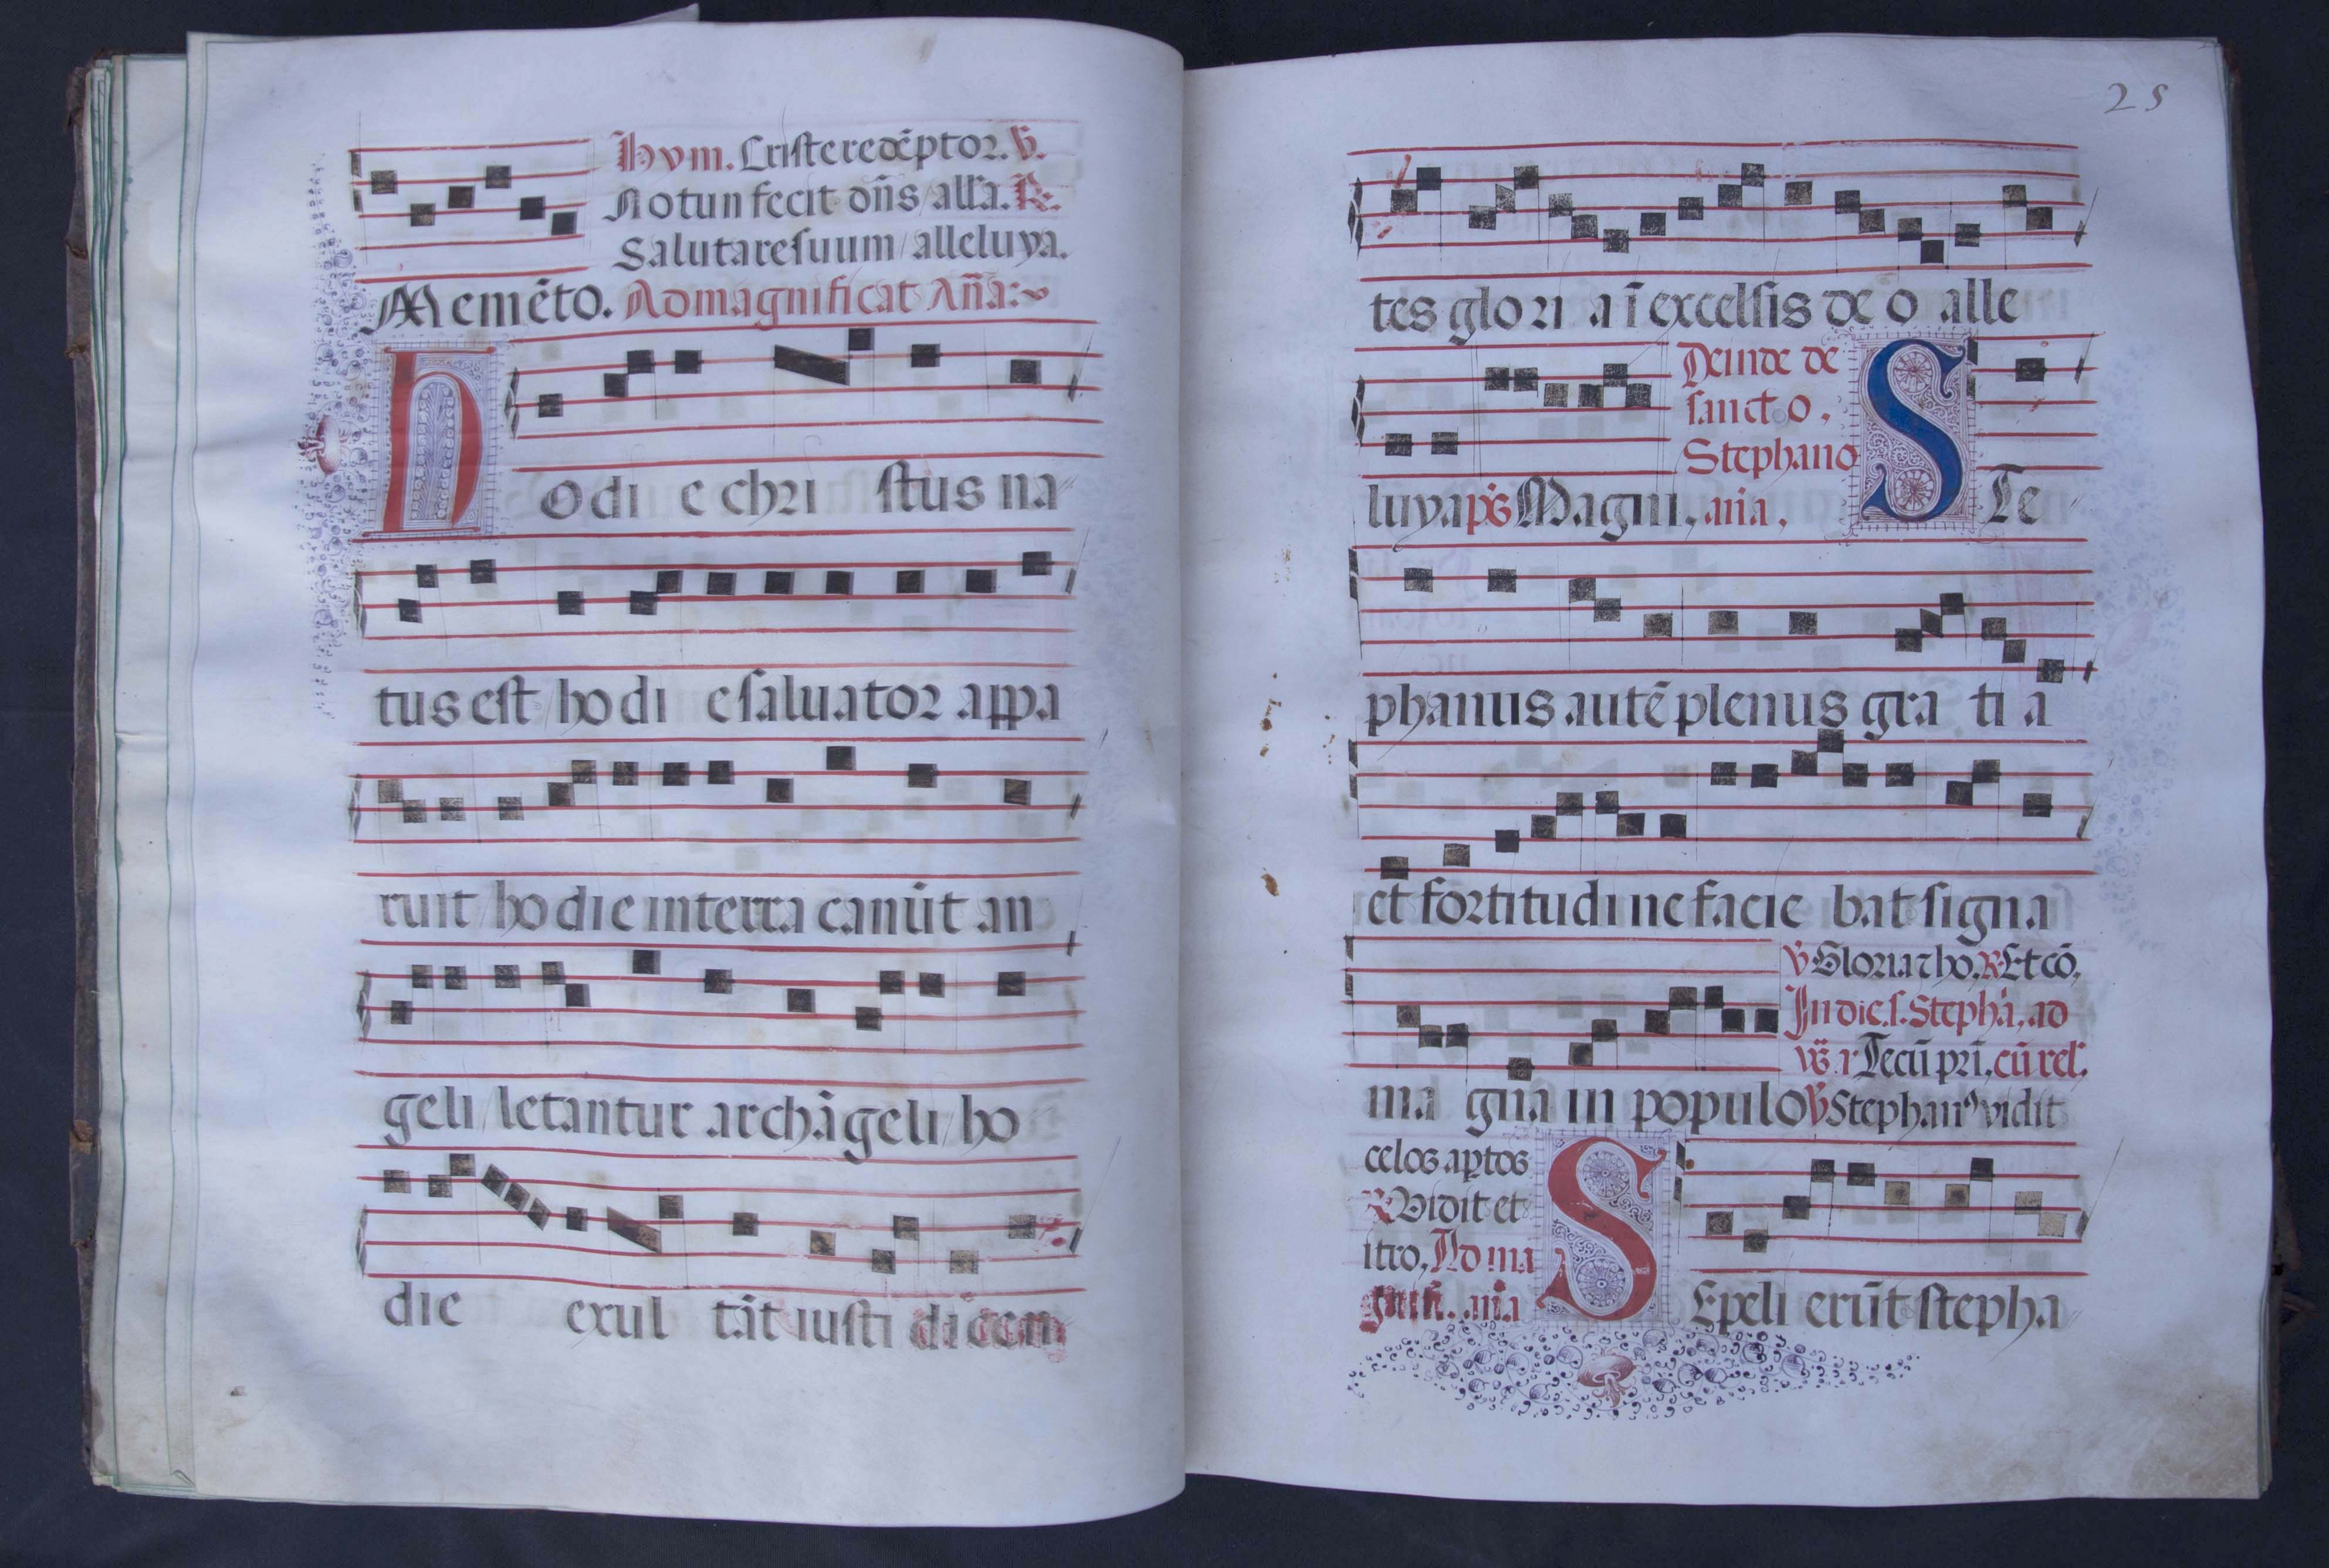 hym. Criste redēptor. ℣.
Notun fecit dn̄s / all'a. ℟.
Salutare suum / alleluya.
Memēto. Ad magnificat An̄a:
Hodi e chri stus na
tus est / ho di e saluator appa
ruit / ho die in terra canūt an
geli / letantur archāgeli / ho
die exul tāt iusti dicen
25
tes glori a ī excelsis de o alle
Deinde de
sancto.
Stephano
luya ps̄ Magni. an̄a. STe
phanus autē plenus gra ti a
et fortitudine facie bat signa
℣. Gloria ⁊ ho. ℟. Et cō.
In die. s. Stephā. ad
vs̄ Tecū prī. cū rel'.
ma gna in populo ℣ Stephanꝰ vidit
celos aꝑtos
℟ Vidit et
itro, Ad ma
gnifi. an̄a
SEpeli erūt stepha